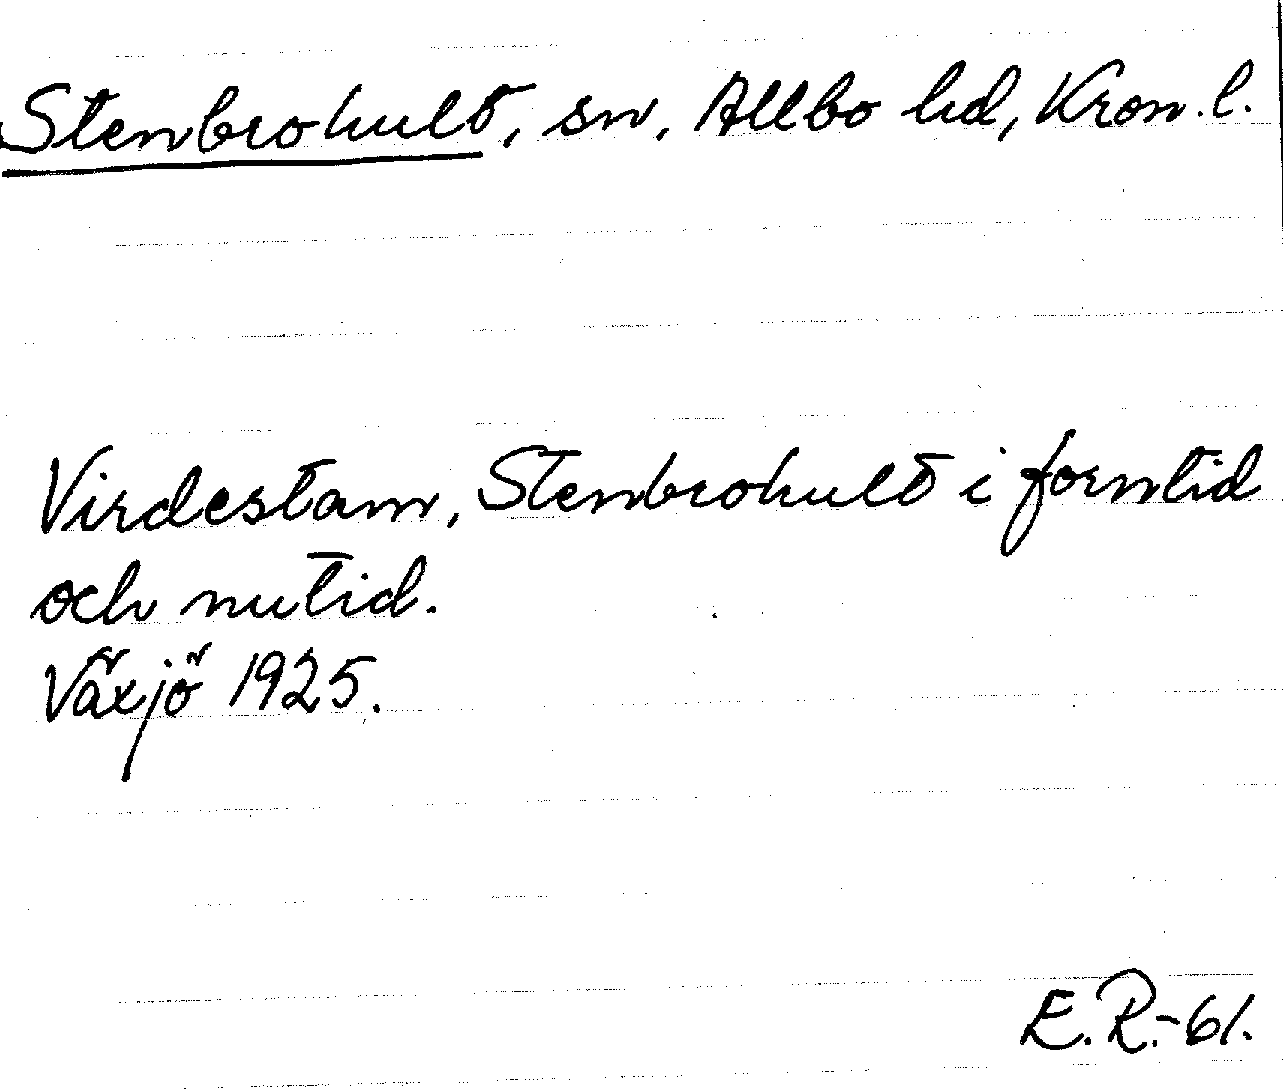 Stenbrohult, sn, Allbo hd, Kron. l.
Virdestam, Stenbrohult i forntid
och nutid.
Växjö 1925.
E.R.-61.